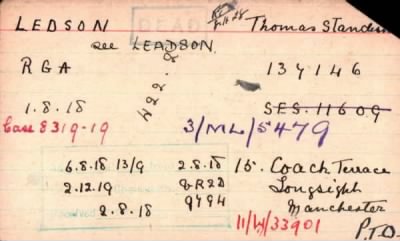 LEDSON Thomas Standish
DEAD
see LEADSON
RGA 134146
1.8.18 SES.11609
Case 8319-19 3/ML/5479
6.8.18 13/9 2.8.18 15. Coach Terrace
2.12.19 Longsight
2.8.18 9494 Manchester
11/W/33901 P.T.O.